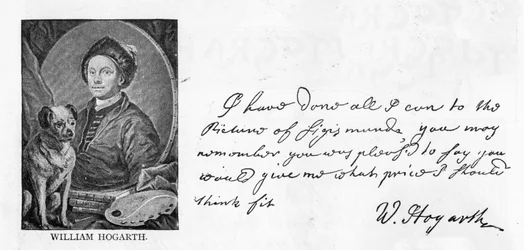 WILLIAM HOGARTH.
I have done all I can to the
Picture of Sigismunda you may
remember you was pleas'd to say you
would give me what price I should
think fit
W. Hogarth